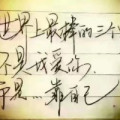 世界上最棒的三个
不是我爱你,
而是…靠自己